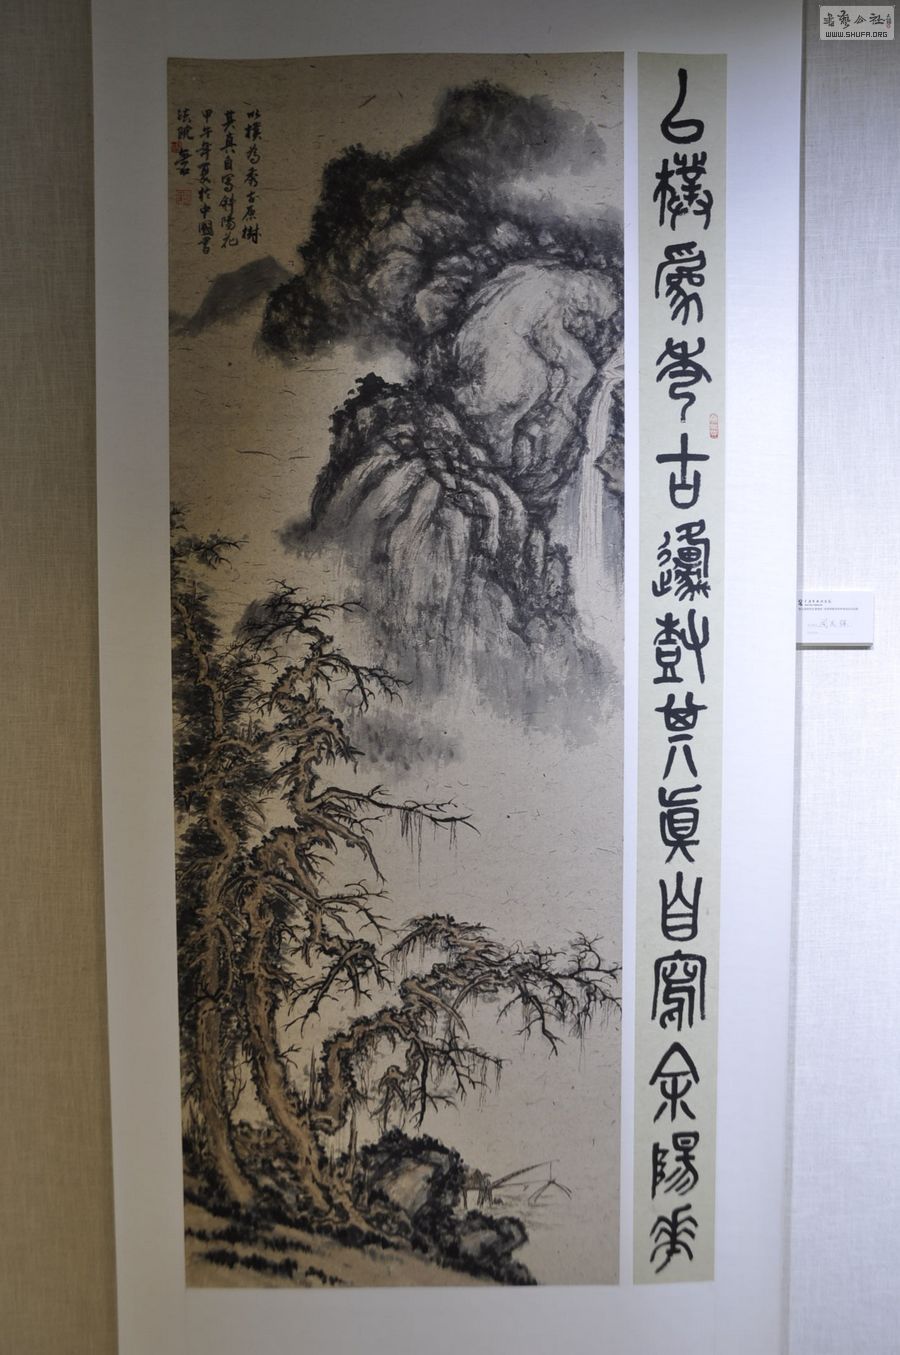 以樸為秀古原樹其真自寫斜陽花
以樸為秀古原樹
其真自寫斜陽花
甲午年夏於中國書
法院
WWW.SHUFA.ORG